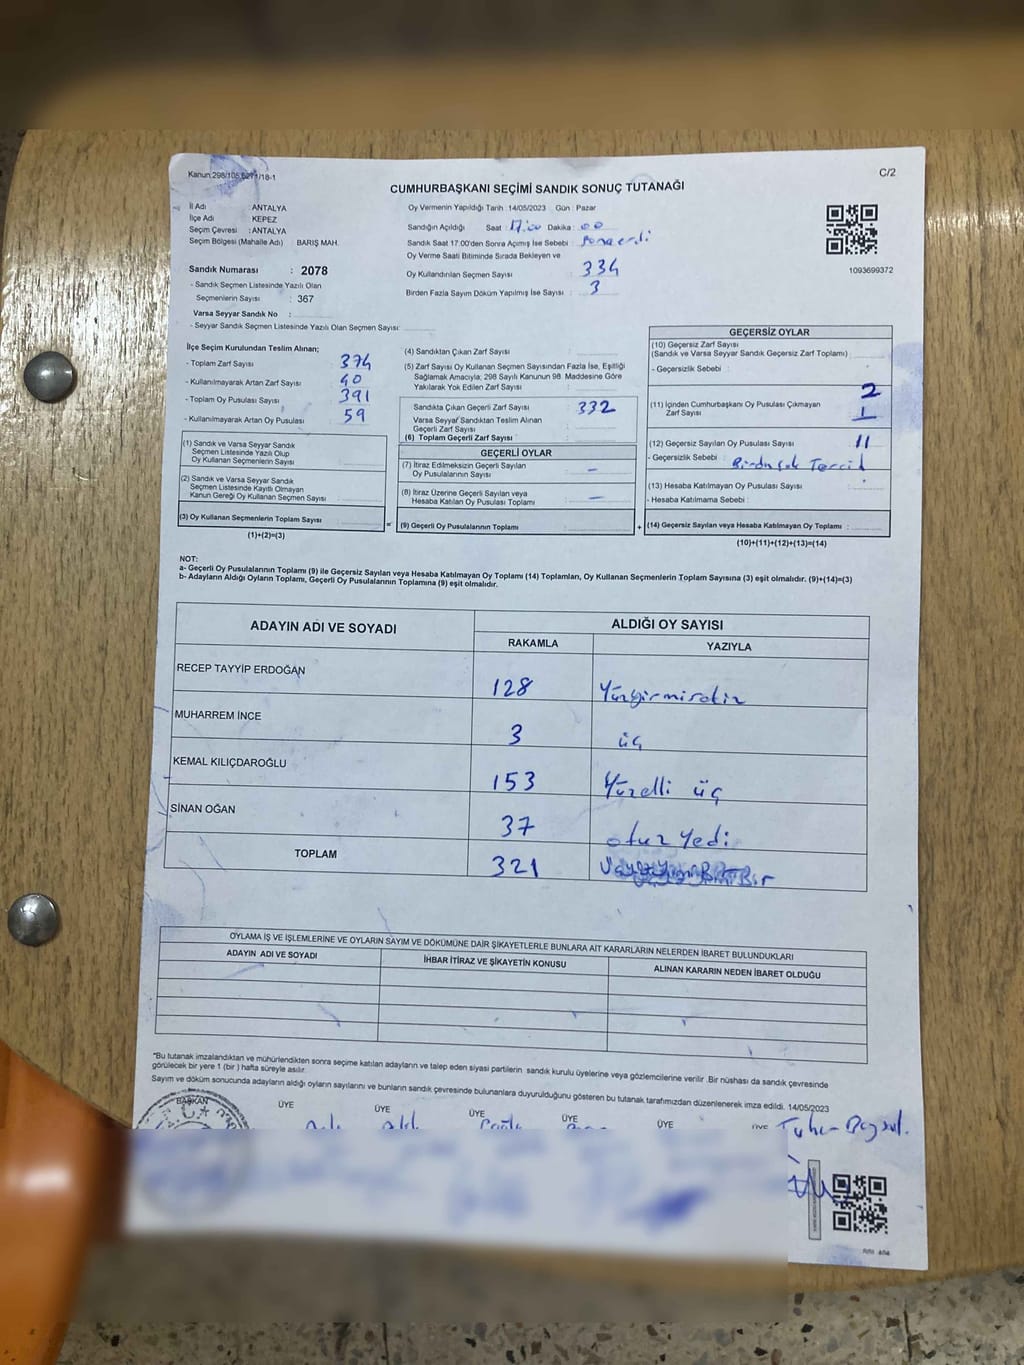 Kanun:298/105,6271/18-1
C/2
CUMHURBAŞKANI SEÇİMİ SANDIK SONUÇ TUTANAĞI
İl Adı : ANTALYA
İlçe Adı KEPEZ
Seçim Çevresi : ANTALYA
Seçim Bölgesi (Mahalle Adı) BARIŞ MAH.
Sandık Numarası : 2078
- Sandık Seçmen Listesinde Yazılı Olan
Seçmenlerin Sayısı : 367
Varsa Seyyar Sandık No :
- Seyyar Sandık Seçmen Listesinde Yazılı Olan Seçmen Sayısı:
Oy Vermenin Yapıldığı Tarih :14/05/2023 Gün : Pazar
Sandığın Açıldığı Saat : 17:00 Dakika : 00
Sandık Saat 17:00'den Sonra Açılmış İse Sebebi :
Oy Verme Saati Bitiminde Sırada Bekleyen ve
Oy Kullandırılan Seçmen Sayısı : 334
Birden Fazla Sayım Döküm Yapılmış İse Sayısı : 3
1093699372
İlçe Seçim Kurulundan Teslim Alınan;
- Toplam Zarf Sayısı : 374
- Kullanılmayarak Artan Zarf Sayısı : 40
- Toplam Oy Pusulası Sayısı : 391
- Kullanılmayarak Artan Oy Pusulası : 59
(1) Sandık ve Varsa Seyyar Sandık
Seçmen Listesinde Yazılı Olup
Oy Kullanan Seçmenlerin Sayısı :
(2) Sandık ve Varsa Seyyar Sandık
Seçmen Listesinde Kayıtlı Olmayan
Kanun Gereği Oy Kullanan Seçmen Sayısı :
(3) Oy Kullanan Seçmenlerin Toplam Sayısı :
(1)+(2)=(3)
=
(4) Sandıktan Çıkan Zarf Sayısı :
(5) Zarf Sayısı Oy Kullanan Seçmen Sayısından Fazla İse, Eşitliği
Sağlamak Amacıyla; 298 Sayılı Kanunun 98. Maddesine Göre
Yakılarak Yok Edilen Zarf Sayısı :
Sandıkta Çıkan Geçerli Zarf Sayısı : 332
Varsa Seyyar Sandıktan Teslim Alınan
Geçerli Zarf Sayısı :
(6) Toplam Geçerli Zarf Sayısı :
GEÇERLİ OYLAR
(7) İtiraz Edilmeksizin Geçerli Sayılan
Oy Pusulalarının Sayısı : –
(8) İtiraz Üzerine Geçerli Sayılan veya
Hesaba Katılan Oy Pusulası Toplamı : –
(9) Geçerli Oy Pusulalarının Toplamı :
+
GEÇERSİZ OYLAR
(10) Geçersiz Zarf Sayısı
(Sandık ve Varsa Seyyar Sandık Geçersiz Zarf Toplamı) :
- Geçersizlik Sebebi :
2
(11) İçinden Cumhurbaşkanı Oy Pusulası Çıkmayan
Zarf Sayısı : 1
(12) Geçersiz Sayılan Oy Pusulası Sayısı : 11
- Geçersizlik Sebebi : Birden çok Tercih
(13) Hesaba Katılmayan Oy Pusulası Sayısı :
- Hesaba Katılmama Sebebi :
(14) Geçersiz Sayılan veya Hesaba Katılmayan Oy Toplamı :
(10)+(11)+(12)+(13)=(14)
NOT:
a- Geçerli Oy Pusulalarının Toplamı (9) ile Geçersiz Sayılan veya Hesaba Katılmayan Oy Toplamı (14) Toplamları, Oy Kullanan Seçmenlerin Toplam Sayısına (3) eşit olmalıdır. (9)+(14)=(3)
b- Adayların Aldığı Oyların Toplamı, Geçerli Oy Pusulalarının Toplamına (9) eşit olmalıdır.
ADAYIN ADI VE SOYADI ALDIĞI OY SAYISI
RAKAMLA YAZIYLA
RECEP TAYYİP ERDOĞAN 128 Yüzyirmisekiz
MUHARREM İNCE 3 üç
KEMAL KILIÇDAROĞLU 153 Yüzelli üç
SİNAN OĞAN 37 otuz yedi
TOPLAM 321
OYLAMA İŞ VE İŞLEMLERİNE VE OYLARIN SAYIM VE DÖKÜMÜNE DAİR ŞİKAYETLERLE BUNLARA AİT KARARLARIN NELERDEN İBARET BULUNDUKLARI
ADAYIN ADI VE SOYADI İHBAR İTİRAZ VE ŞİKAYETİN KONUSU ALINAN KARARIN NEDEN İBARET OLDUĞU
*Bu tutanak imzalandıktan ve mühürlendikten sonra seçime katılan adayların ve talep eden siyasi partilerin sandık kurulu üyelerine veya gözlemcilerine verilir .Bir nüshası da sandık çevresinde
görülecek bir yere 1 (bir ) hafta süreyle asılır.
Sayım ve döküm sonucunda adayların aldığı oyların sayılarını ve bunların sandık çevresinde bulunanlara duyurulduğunu gösteren bu tutanak tarafımızdan düzenlenerek imza edildi. 14/05/2023
BAŞKAN ÜYE ÜYE ÜYE ÜYE ÜYE
T.C.